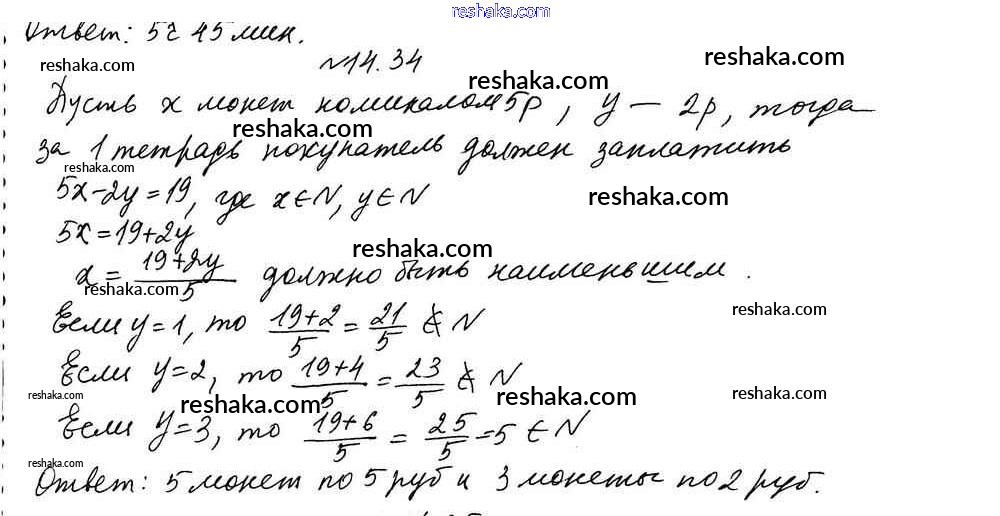 reshaka.com
Ответ: 5 г 45 мин.
reshaka.com
№14.34
reshaka.com
reshaka.com
Пусть x монет номиналом 5р, y — 2р, тогда
reshaka.com
за 1 тетрадь покупатель должен заплатить
reshaka.com
5x-2y=19, где x∈N, y∈N
reshaka.com
5x=19+2y
reshaka.com
x = (19+2y)/5 должно быть наименьшим.
reshaka.com
reshaka.com
Если y=1, то (19+2)/5 = 21/5 ∉ N
Если y=2, то (19+4)/5 = 23/5 ∉ N
reshaka.com
reshaka.com
reshaka.com
reshaka.com
Если y=3, то (19+6)/5 = 25/5 =5 ∈ N
reshaka.com
Ответ: 5 монет по 5 руб и 3 монеты по 2 руб.